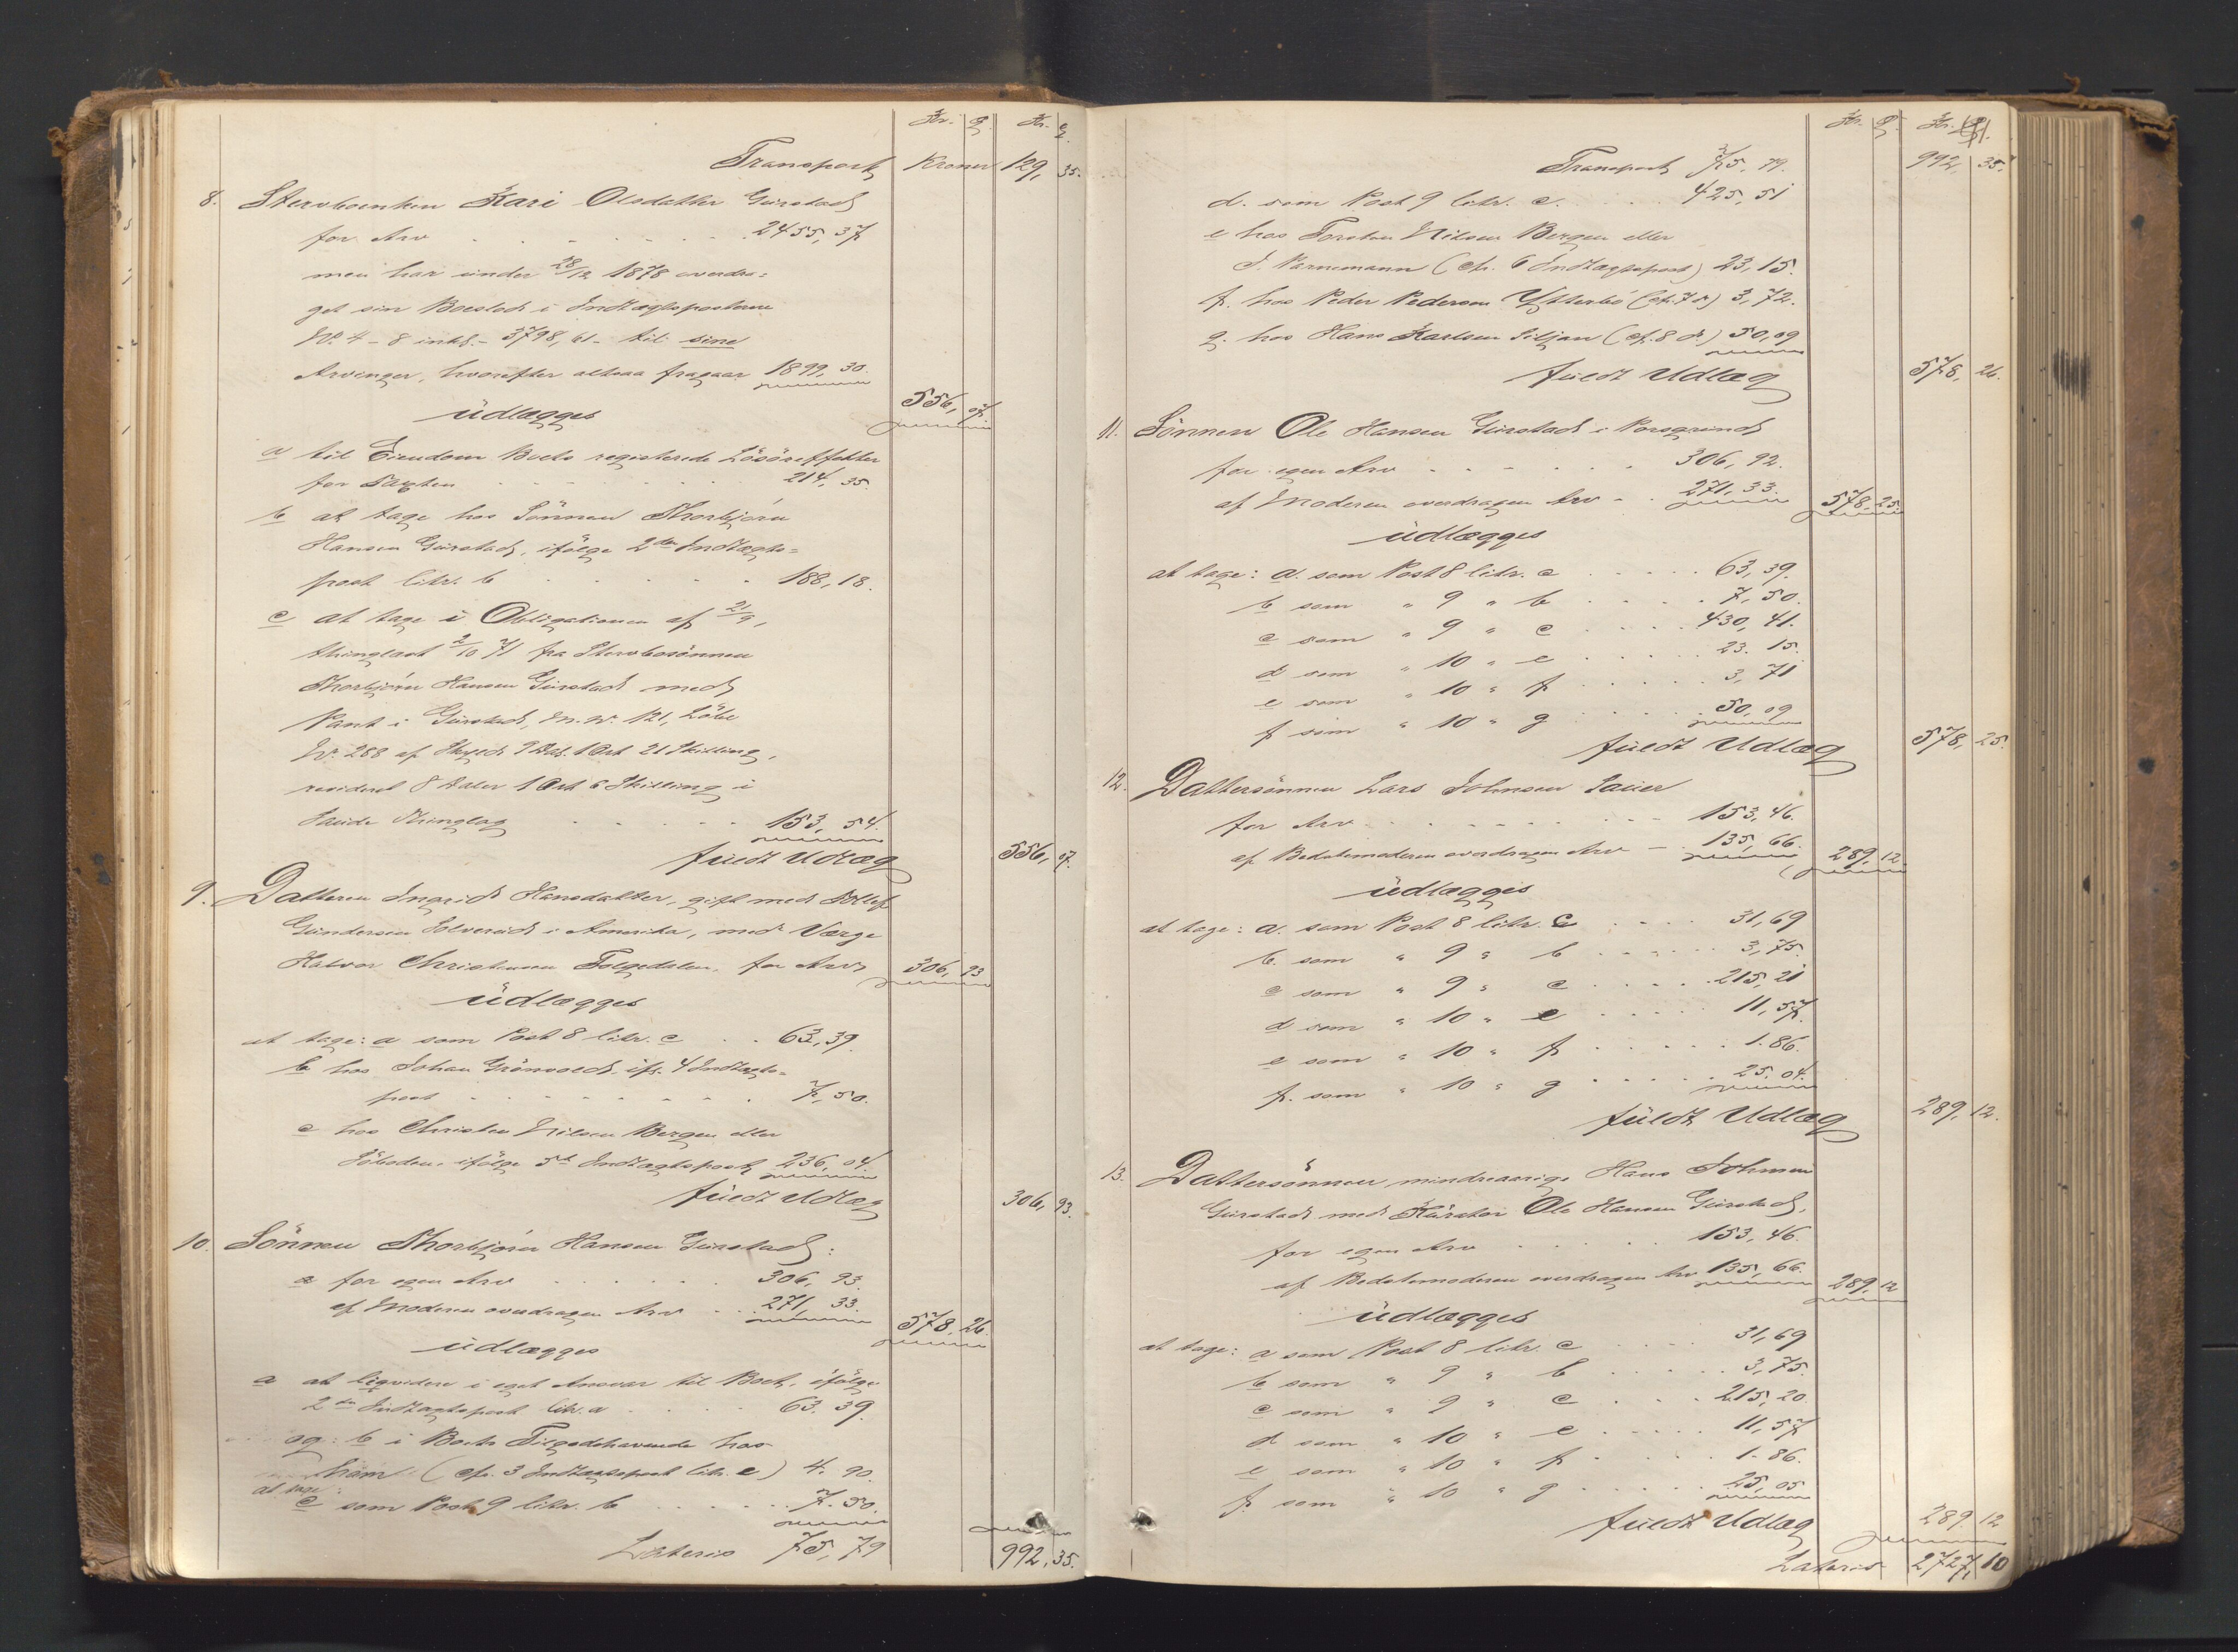 Kr. Ø. Kr. Ø.
Transport Kroner 129, 35.
8. Stervboenken Kari Olsdatter Gurstad
for Arv 2455, 37
men har under 28/12 1878 overdra=
get sin Boeslod i Indtægtsposterne
No. 4 - 8 inkl. - 3798, 61 - til sine
Arvinger, hvorefter altsaa fragaar 1899, 30.
udlægges 556, 07.
a til Eiendom Boets registerede Lösöreffekter
for Taxten 214, 35.
b at tage hos Sönnen Thorbjörn
Hansen Gurstad, ifölge 2den Indtægts=
post litr. b 188, 18.
c at tage i Obligationen af 21/9,
thinglæst 2/10 71 fra Stervbosönnen
Thorbjörn Hansen Gurstad med
Pant i Gurstad, M. No. 121, Löbe
No. 288 af Skyld 9 Dal. 1 Ort 21 Skilling,
revideret 8 Daler 1 Ort 6 Skilling i
Saude Thinglag 153, 54.
fuldt Udlæg 556, 07.
9. Datteren Ingrid Hansdatter, gift med
Gundersen Solvereid i Amerika, med Værge
Halvor Christensen Folgedalen, for Arv 306, 93
udlægges
at tage: a som Post 8 litr. c 63, 39.
b hos Johan Grönvold, ifr. 4 Indtægts=
post 7, 50.
c hos Christen Nilsen Bergen eller
ifölge 5te Indtægtspost 236, 04.
fuldt Udlæg 306, 93.
10. Sönnen Thorbjörn Hansen Gurstad:
a for egen Arv 306, 93.
af Moderen overdragen Arv 271, 33. 578, 26.
udlægges
a at liqvidere i eget Ansvar til Boet, ifölge
2den Indtægtspost litr. a 63. 39.
og: b i Boets Tilgodehavende hos
ham (cfr. 3 Indtægtspost litr. c) 4. 90.
at tage:
c som Post 9 litr. b 7. 50.
Lateris 75, 79 992, 35.
Kr. Ø. Kr. Ø.
Transport 75. 79. 992, 35.
d. som Post 9 litr. c. 425, 51
e hos Torsten Nilsen Bergen eller
J. Parnemann (cfr. 6 Indtægtspost) 23, 15.
f. hos Peder Pedersen Ytterbö (cf. 7 d.) 3, 72.
g. hos Hans Karlsen Siljan (cf. 8 d.) 50, 09
fuldt Udlæg 578, 26.
11. Sönnen Ole Hansen Gurstad i Porsgrund
for egen Arv 306, 92.
af Moderen overdragen Arv 271, 33. 578, 25.
udlægges
at tage: a. som Post 8 litr. c 63, 39.
b som " 9 " b 7, 50.
c som " 9 " c 430, 41.
d som " 10 " e 23. 15.
e som " 10 " f 3, 71
f som " 10 " g 50, 09
fuldt Udlæg 578, 25.
12. Dattersönnen Lars Johnsen Sauer
for Arv 153, 46.
af Bedstemoderen overdragen Arv 135, 66. 289, 12.
udlægges
at tage: a. som Post 8 litr. c 31, 69
b. som " 9 " b 3, 75.
c som " 9 " c 215, 21
d som " 10 " e 11, 57.
e som " 10 " f 1. 86.
f. som " 10 " g 25. 04.
fuldt Udlæg 289, 12.
13. Dattersönnen mindreaarige Hans Johnsen
Gurstad med Kurator Ole Hansen Gurstad,
for egen Arv 153, 46.
af Bedstemoderen overdragen Arv 135, 66. 289, 12
udlægges
at tage: a som Post 8 litr. c 31, 69
b som " 9 " b 3, 75.
c som " 9 " c 215, 20.
d som " 10 " e 11, 57
e som " 10 " f 1. 86.
f som " 10 " g 25, 05
fuldt Udlæg 289. 12
Lateris 2727, 10